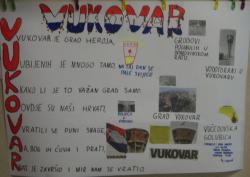 VUKOVAR
VUKOVAR
VUKOVAR JE GRAD HEROJA,
UBIJENIH JE MNOGO TAMO
KAKO LI JE TO VAŽAN GRAD SAMO
OVDJE SU NAŠI HRVATI,
VRATILI SE PUNI SNAGE,
DA BOG IH ČUVA I PRATI,
RAT JE ZAVRŠIO I MIR NAM JE VRATIO
NA TAJ DAN SE
PALE SVIJEĆE
GROBOVI
POGINULIH U
DOMOVINSKOM
RATU
VODOTORANJ U
VUKOVARU
GRAD VUKOVAR
VUKOVAR
VUČEDOLSKA
GOLUBICA